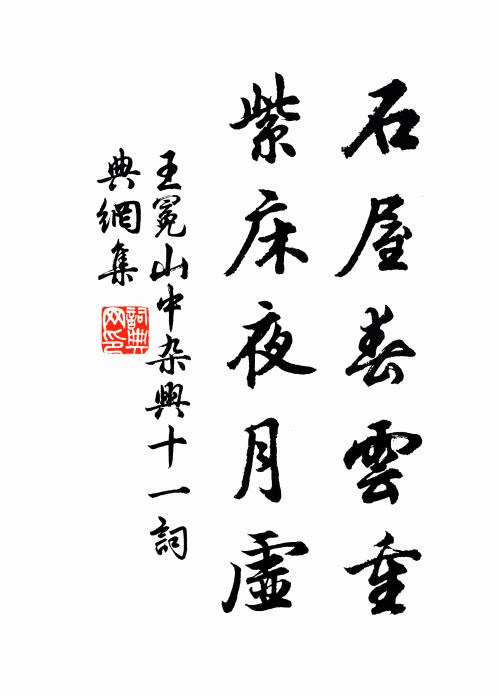 石屋春雲重
紫床夜月虛
王冕山中杂興十一詞
典網集
詞典网印